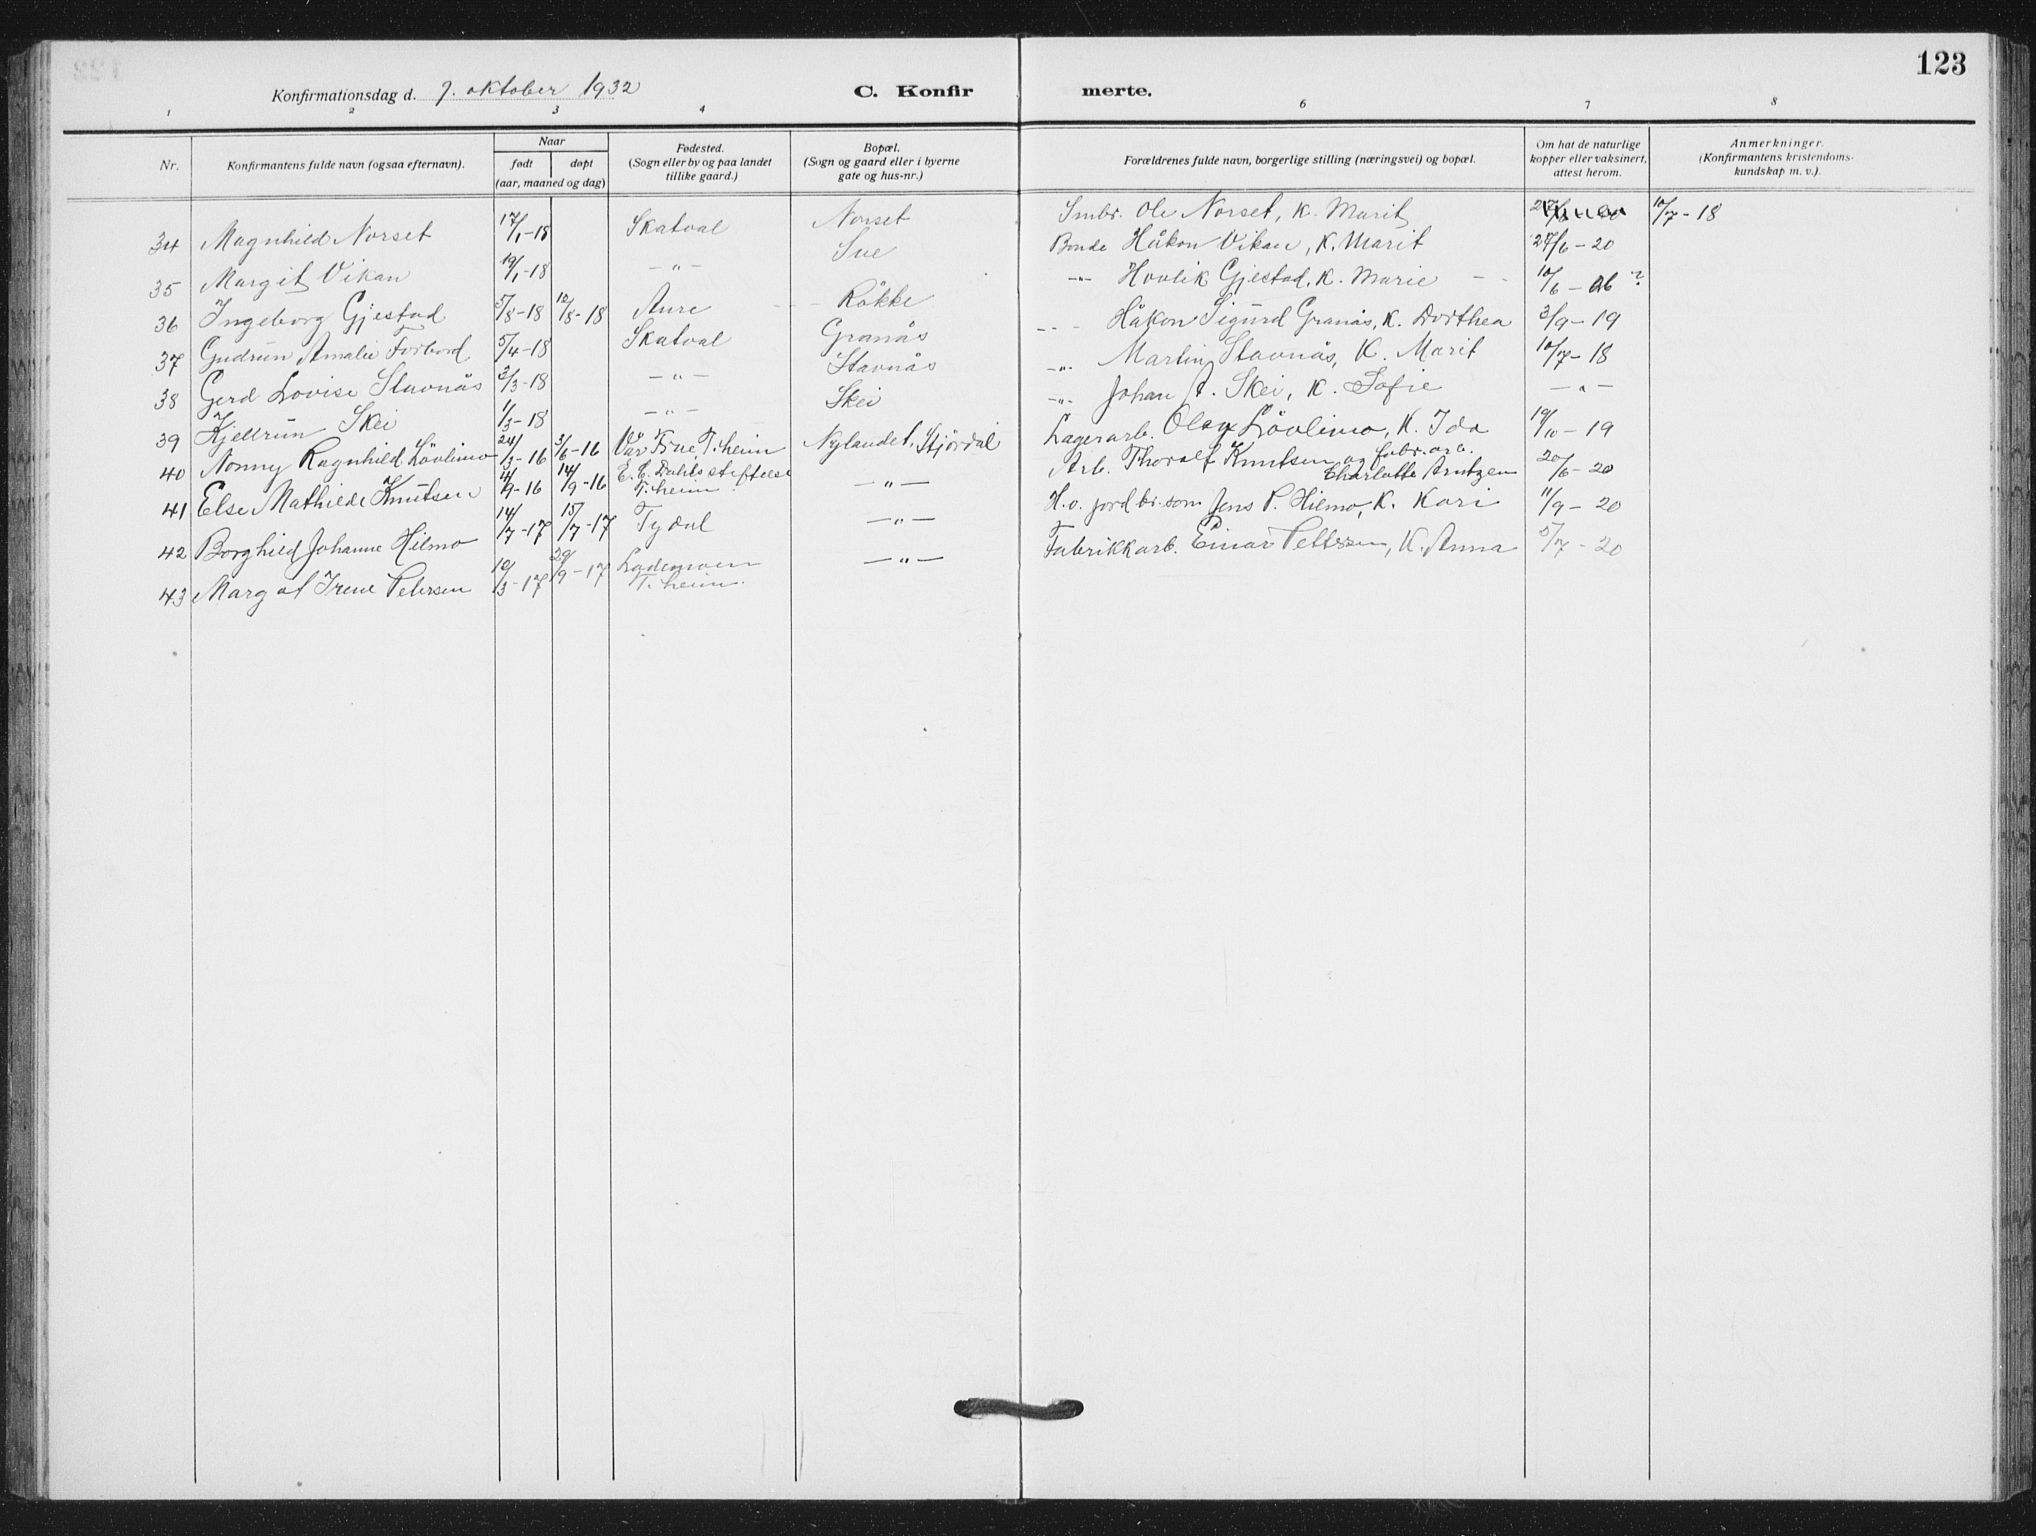 123
Konfirmationsdag d. 9. oktober 1932 C. Konfir merte.
1 2 3 4 6 7 8
Nr. Konfirmantens fulde navn (ogsaa efternavn). Naar født døpt (aar, maaned og dag) Fødested. (Sogn eller by og paa landet tillike gaard.) Bopæl. (Sogn og gaard eller i byerne gate og hus-nr.) Forældrenes fulde navn, borgerlige stilling (næringsvei) og bopæl. Om hat de naturlige kopper eller vaksinert, attest herom. Anmerkninger. (Konfirmantens kristendoms-kundskap m. v.).
34 Magnhild Norset 17/1-18 Skatval Norset Smbr. Ole Norset, K. Marit 10/7-18
35 Margit Vikan 19/1-18 -"- Sve Bonde Håkon Vikan, K. Marit 27/6-20
36 Ingeborg Gjestad 5/8-18 12/8-18 Aure Røkke -"- Hovlik Gjestad, K. Marie 10/6-06?
37 Gudrun Amalie Forbord 5/4-18 Skatval Granås -"- Håkon Sigurd Granås, K. Dorthea 3/9-19
38 Gerd Lovise Stavnås 2/3-18 -"- Stavnås -"- Martin Stavnås, K. Marit 10/7-18
39 Kjellrun Skei 1/3-18 -"- Skei -"- Johan A. Skei, K. Sofie -"-
40 Nonny Ragnhild Lövlimo 24/3-16 3/6-16 Vår Frue, T.heim Nylandet, Stjørdal Lagerarb. Olay Lövlimo, K. Ida 19/10-19
41 Else Mathilde Knutsen 11/9-16 14/9-16 E. C. Dahls stiftelse T.heim -"- Arb. Thoralf Knutsen og fabr. arb. Charlotte Arntzen 20/6-20
42 Borghild Johanne Hilmo 14/7-17 15/7-17 Tydal -"- H.v. jordbr. som Jens P. Hilmo, K. Kari 11/9-20
43 Margot Irene Petersen 12/3-17 29/9-17 Lademoen T.heim. -"- Fabrikkarb. Einar Petersen, K. Anna 5/7-20